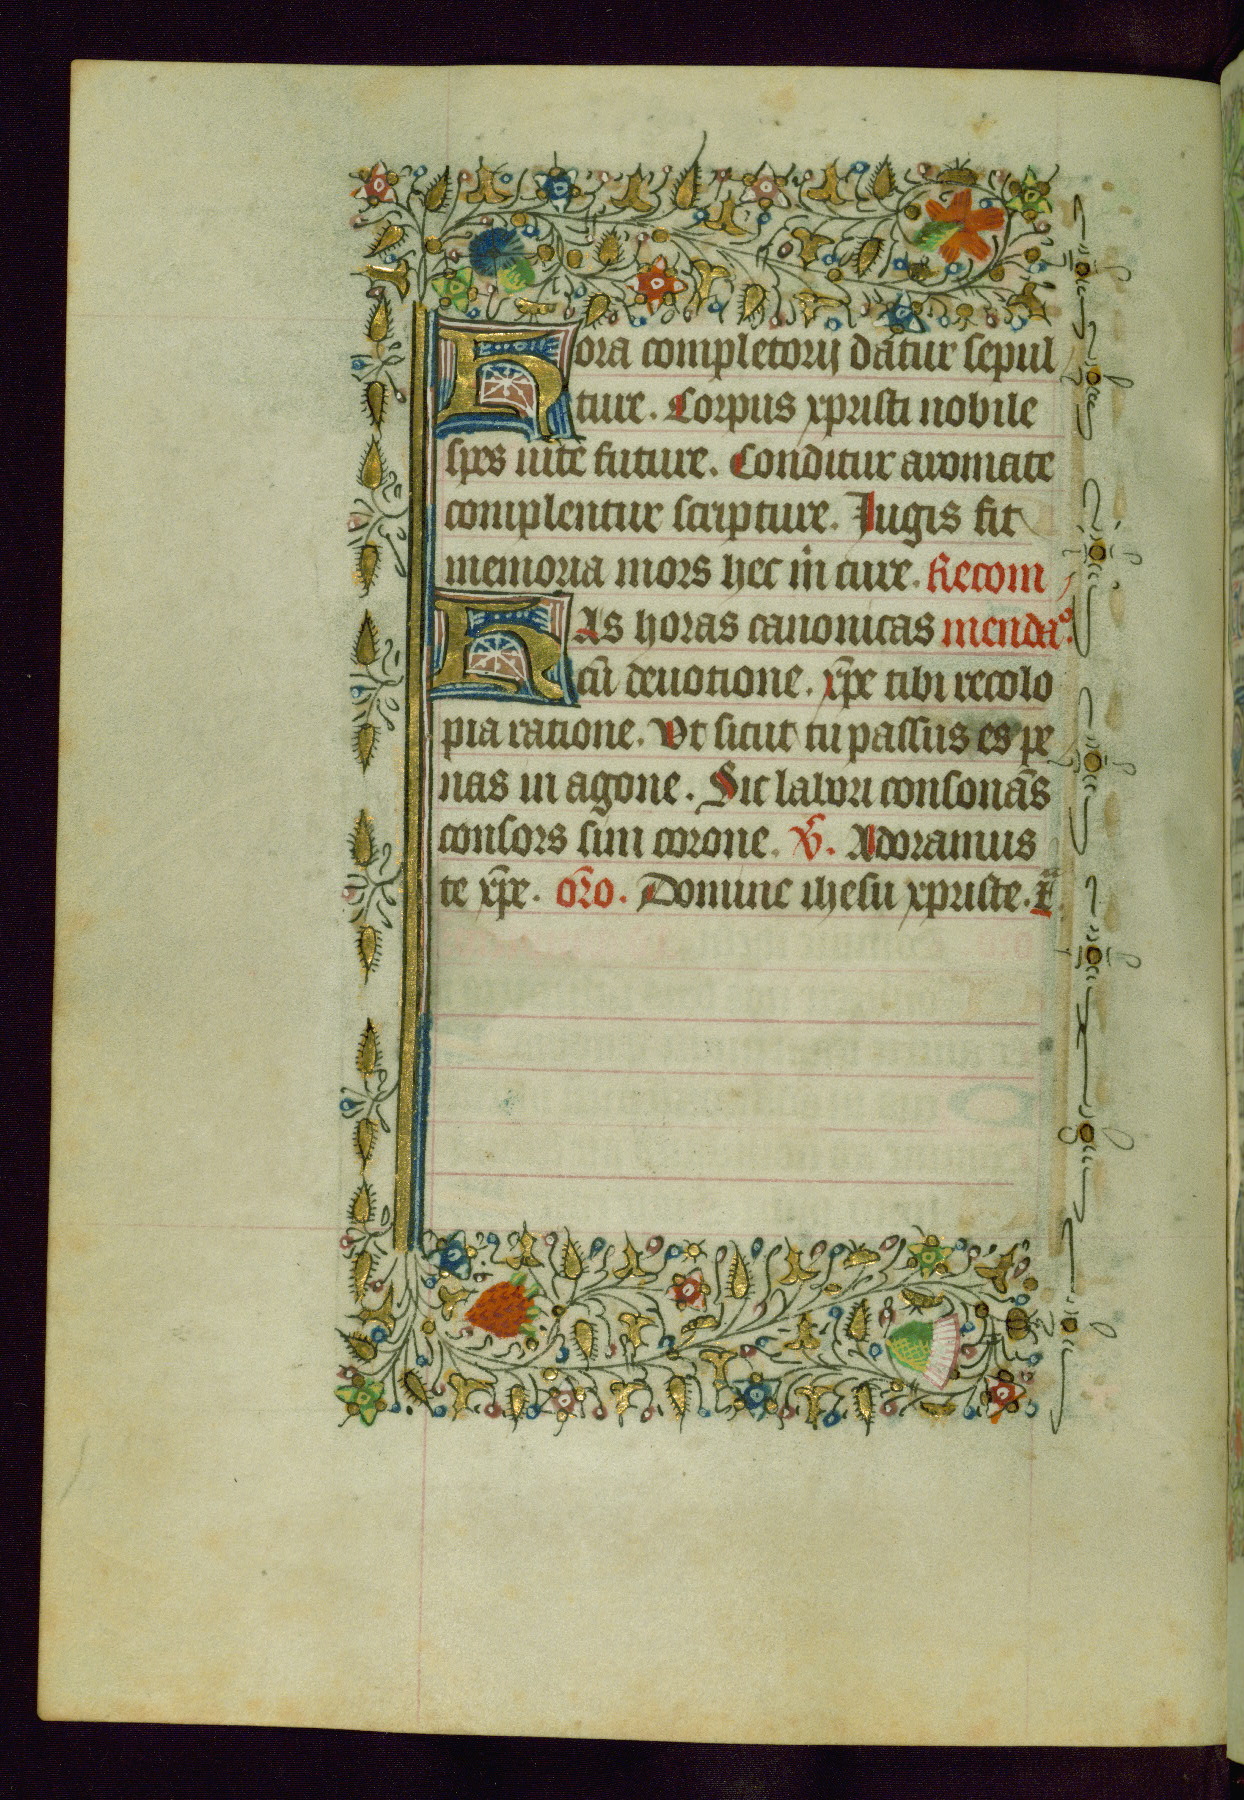 Hora completorij datur sepul
ture. Corpus xpristi nobile
spes uite future. Conditur aromate
complentur scripture. Iugis sit
memoria mors hec in cure. Recom
Has horas canonicas mendaᵒ.
cū deuotione. xp̄e tibi recolo
pia ratione. Vt sicut tu passus es pe
nas in agone. Sic labori consonās
consors sim corone. V̄. Adoramus
te xp̄e. or̄o. Domine ihesu xpriste.